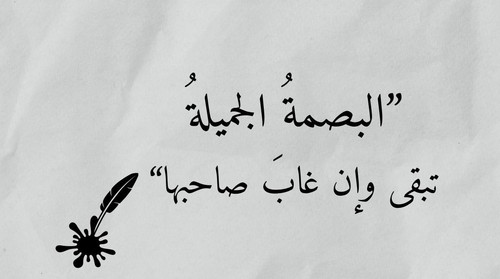 ”البصمةُ الجميلةُ
تبقى وإن غابَ صاحبها“